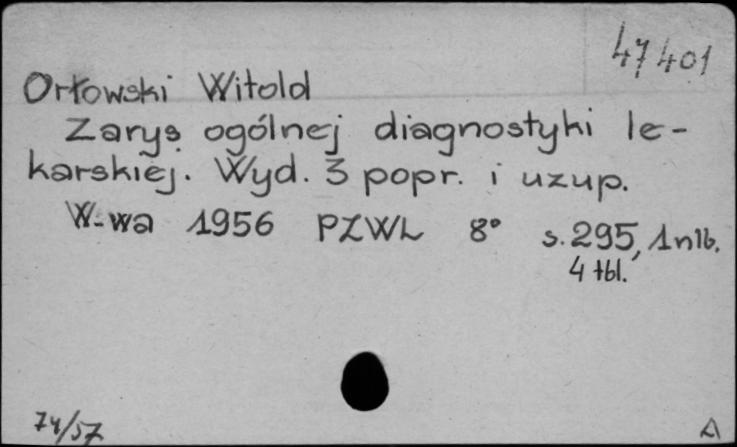 47401
Orłowski Witold
Zarys ogólnej diagnostyki le-
karskiej. Wyd. 3 popr. i uzup.
W-wa 1956 PZWL 8° s. 295, 1 nlb.
4 tbl.
74/57
A